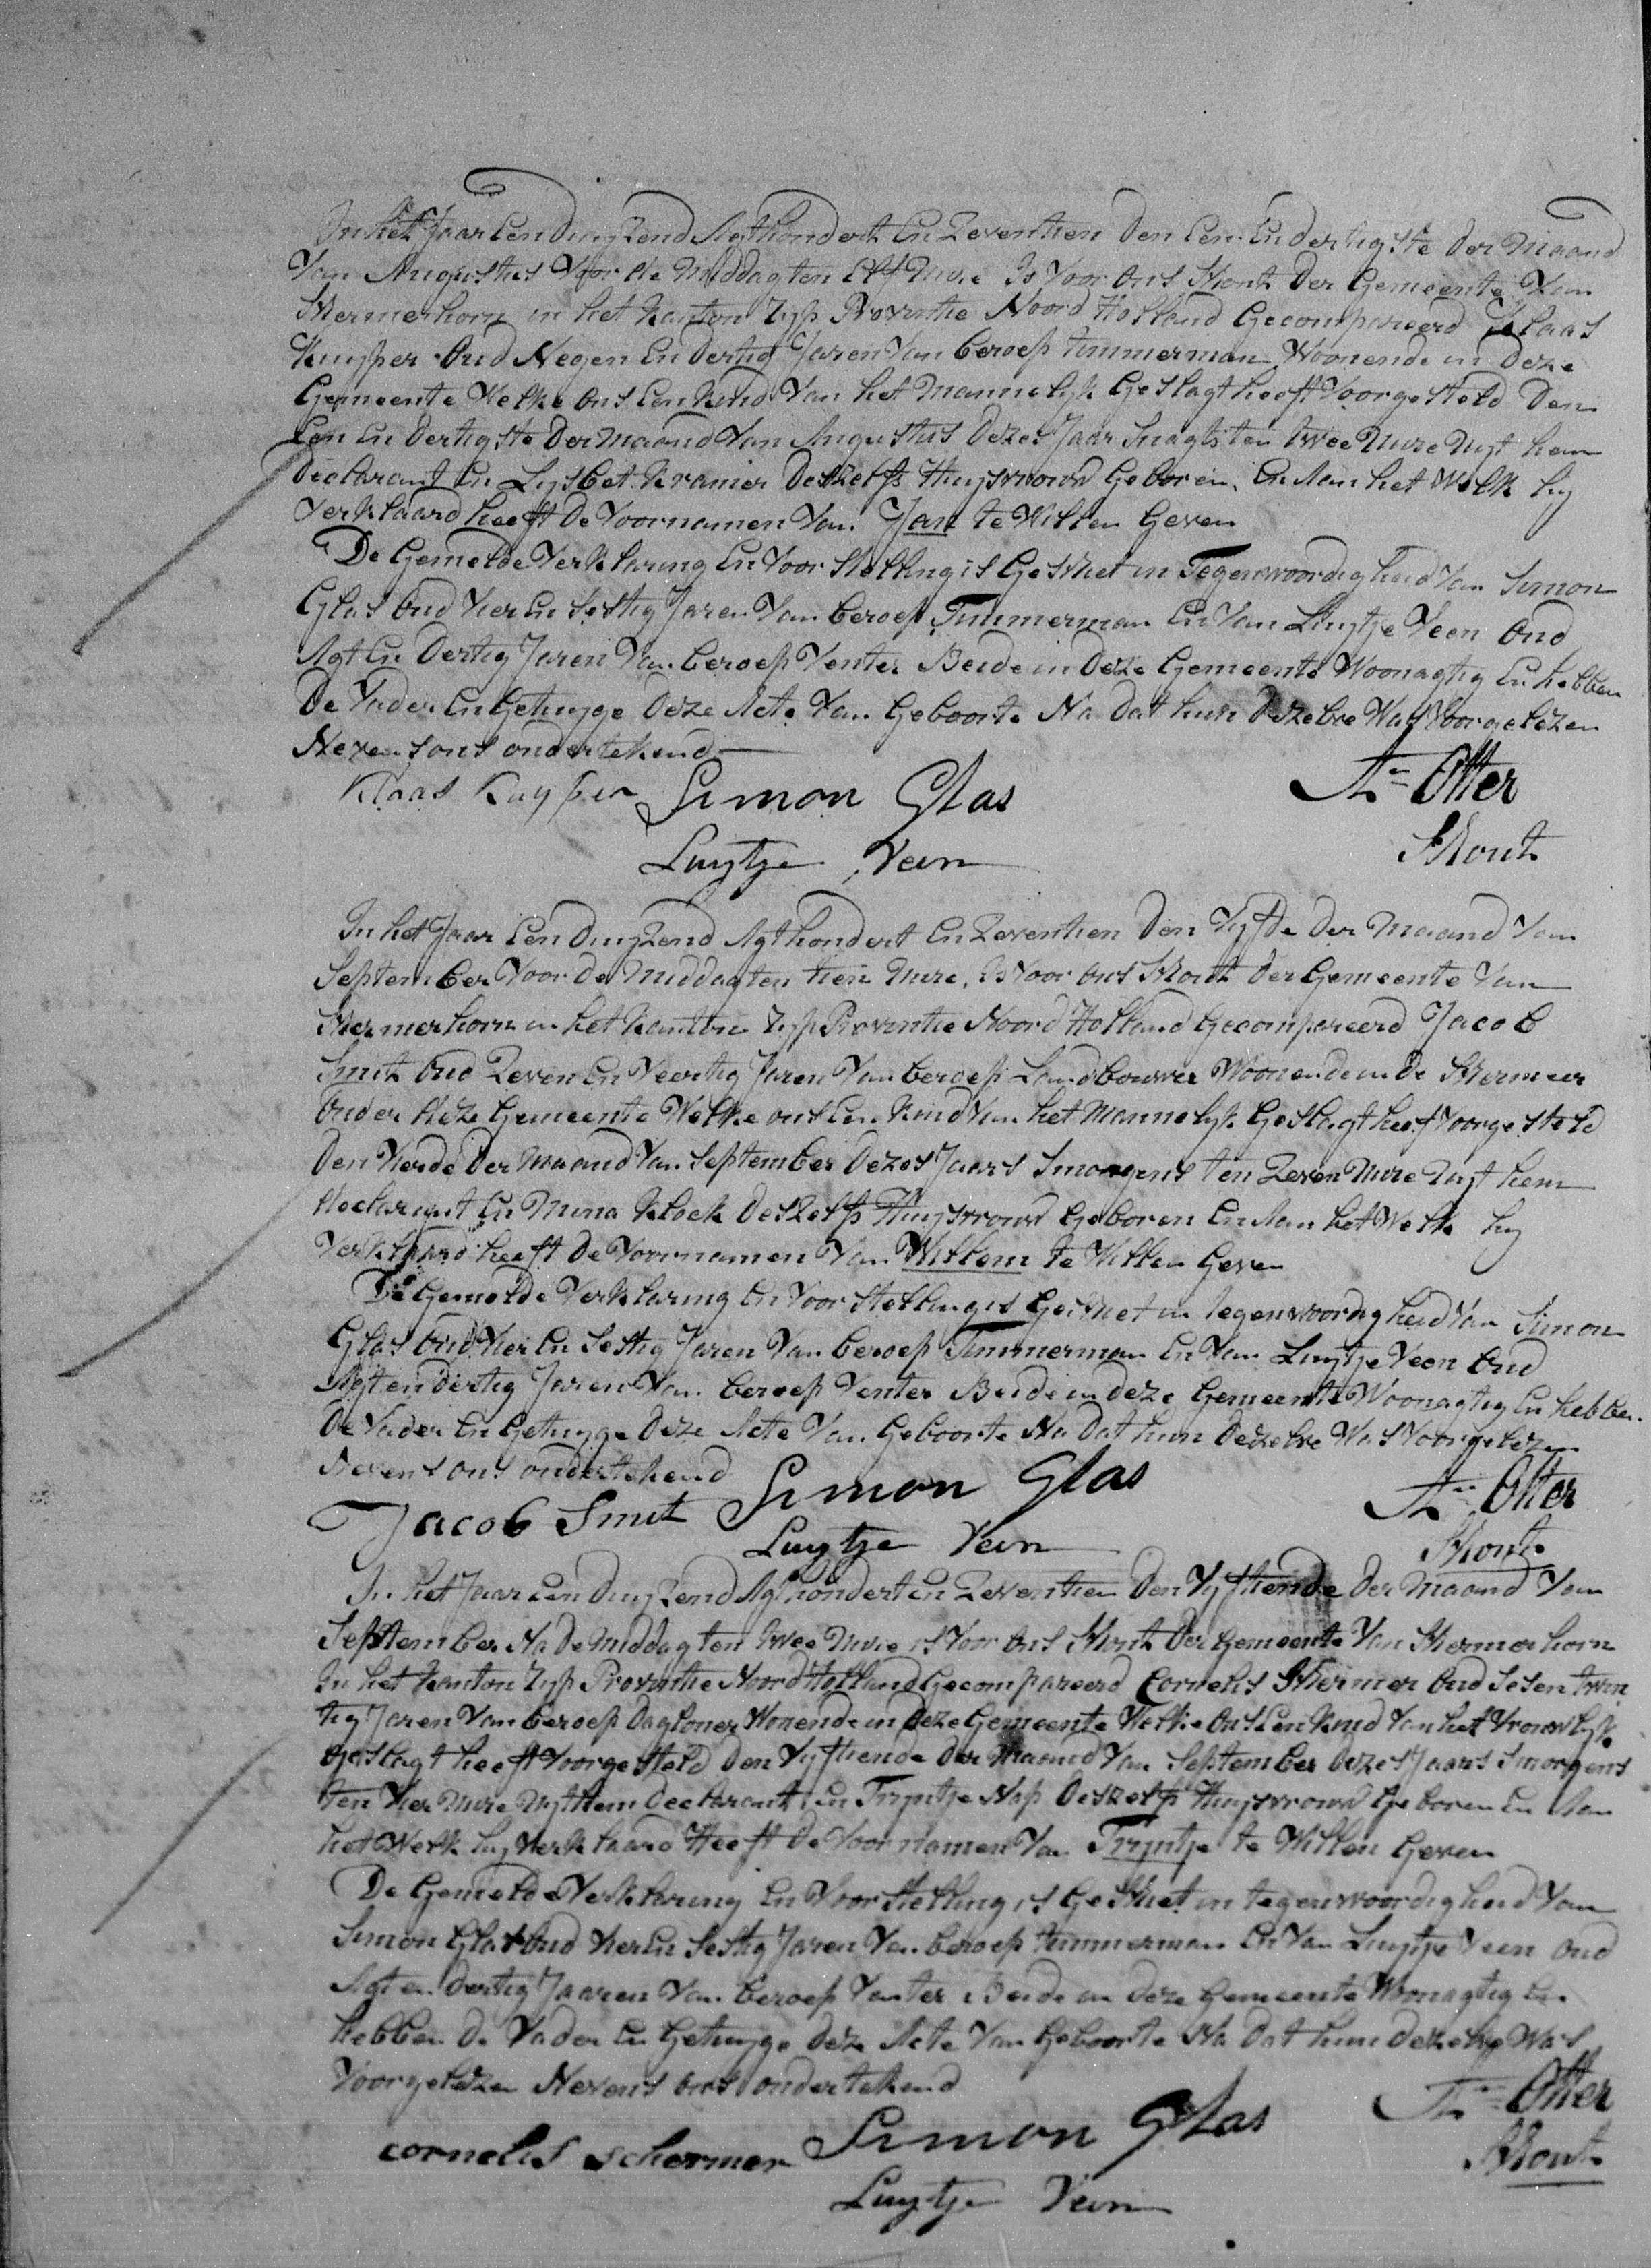 In het Jaar Een Duyzend Agthondert En Zeventien Den Een En dertigste der Maand
Van Augustus Voor de Middag ten Elf Uure Is Voor Ons Schout Der Gemeente Van
Schermerhorn in het Kanton Zyp Provintie Noord Holland Gecompareerd Klaas
Kuyper Oud Negen En Dertig Jaren Van beroep timmerman Woonende in Deze
Gemeente Welke Ons Een Kind Van het Mannelyk Geslagt heeft Voorgesteld Den
Een En Dertigste Der Maand Van Augustus Dezes Jaar Snagts ten twee Uure Uyt hem
Declarant En Lysbet Kramer Deszelfs Huysvrouw Geboren, En Aan het Welk hy
Verklaard heeft De Voornamen Van Jan te Willen Geven
De Gemelde Verklaring En Voorstelling is Geschiet in Tegenwoordigheid Van Simon
Glas Oud Vier En Sestig Jaren Van beroep Timmerman En Van Luytje Veen Oud
Agt En Dertig Jaren Van beroep Venter Beide in Deze Gemeente Woonagtig En hebben
De Vader En Getuyge Deze Acte Van Geboorte Na Dat hun Dezelve Was Voorgelezen
Nevens ons ondertekend
Klaas Kuyper Simon Glas Otter
Luytje Veen Schout
In het Jaar Een Duyzend Agthondert En Zeventien Den Vyfde Der Maand Van
September Voor De Middag ten tien Uure, Is Voor Ons Schout Der Gemeente Van
Schermerhorn in het Kanton Zyp Provintie Noord Holland Gecompareerd Jacob
Smit Oud Zeven En Veertig Jaren Van beroep Landbouwer Woonende in de Schermeer
Onder Deze Gemeente Welke ons Een Kind Van het Mannelyk Geslagt heeft Voorgesteld
Den Vierde Der Maand Van September Dezes Jaars Smorgens ten Zeven Uure Uyt hem
Declarant En Mina Klock Deszelfs Huysvrouw Geboren En Aan het Welk hy
Verklaard heeft De Voornamen Van Willem te Willen Geven
De Gemelde Verklaring En Voorstelling is Geschiet in tegenwoordigheid Van Simon
Glas Oud Vier En Sestig Jaren Van beroep Timmerman En Van Luytje Veen Oud
Agt en dertig Jaren Van beroep Venter Beide in deze Gemeente Woonagtig En hebben
De Vader En Getuyge Deze Acte Van Geboorte Na Dat hun Dezelve Was Voorgelezen
Nevens ons ondertekend
Jacob Smit Simon Glas Otter
Luytje Veen Schout
In het Jaar Een Duyzend Agthondert En Zeventien Den Vyftiende Der Maand Van
September Na De Middag ten twee Uure is Voor Ons Schout Der Gemeente Van Schermerhorn
In het Kanton Zyp Provintie Noord Holland Gecompareerd Cornelis Schermer Oud Sesentwin
tig Jaren Van beroep Dagloner Wonende in Deze Gemeente Welke Ons Een Kind Van het Vrouwlyk
Geslagt heeft Voorgesteld Den Vyftiende Der Maand Van September Dezes Jaars Smorgens
ten Vier Uure Uyt hem Declarant En Tryntje Nap Deszelfs Huysvrouw Geboren En Aan
het Welk hy Verklaard Heeft De Voornamen Van Tryntje te Willen Geven
De Gemelde Verklaring En Voorstelling is Geschiet in tegenwoordigheid Van
Simon Glas Oud Vier En Sestig Jaren Van beroep timmerman En Van Luytje Veen Oud
Agt en dertig Jaaren Van beroep Venter Beide in deze Gemeente Woonagtig En
hebben De Vader En Getuyge Deze Acte Van Geboorte Na Dat hun dezelve Was
Voorgelezen Nevens ons ondertekend
cornelis schermer Simon Glas Otter
Luytje Veen Schout